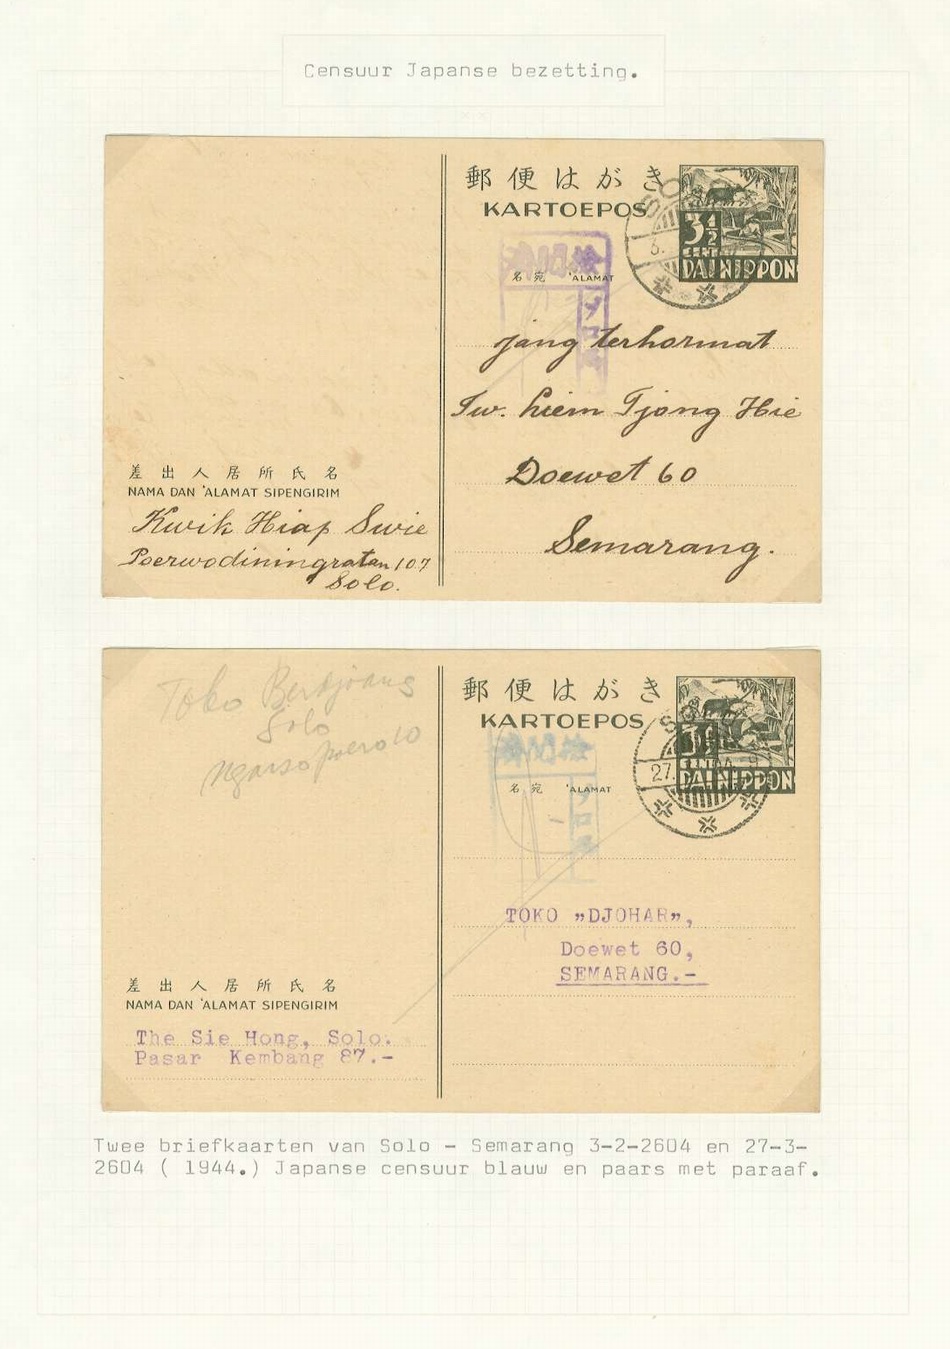 Censuur Japanse bezetting.
郵便はがき
KARTOEPOS
SO
3.
3½
CENT
DAI NIPPON
検閲済
名宛 'ALAMAT
ソロ
jang terhormat
Tw. Liem Tjong Hie
Doewet 60
Semarang.
差出人居所氏名
NAMA DAN 'ALAMAT SIPENGIRIM
Kwik Hiap Swie
Poerwodiningratan 107
Solo.
Toko Berdjoang
Solo
Ngarsopoero 10
郵便はがき
KARTOEPOS
SO
27.
3½
CENT
DAI NIPPON
検閲済
名宛 'ALAMAT
ソロ
TOKO „DJOHAR”,
Doewet 60,
SEMARANG.-
差出人居所氏名
NAMA DAN 'ALAMAT SIPENGIRIM
The Sie Hong, Solo.
Pasar Kembang 87.-
Twee briefkaarten van Solo - Semarang 3-2-2604 en 27-3-
2604 ( 1944.) Japanse censuur blauw en paars met paraaf.